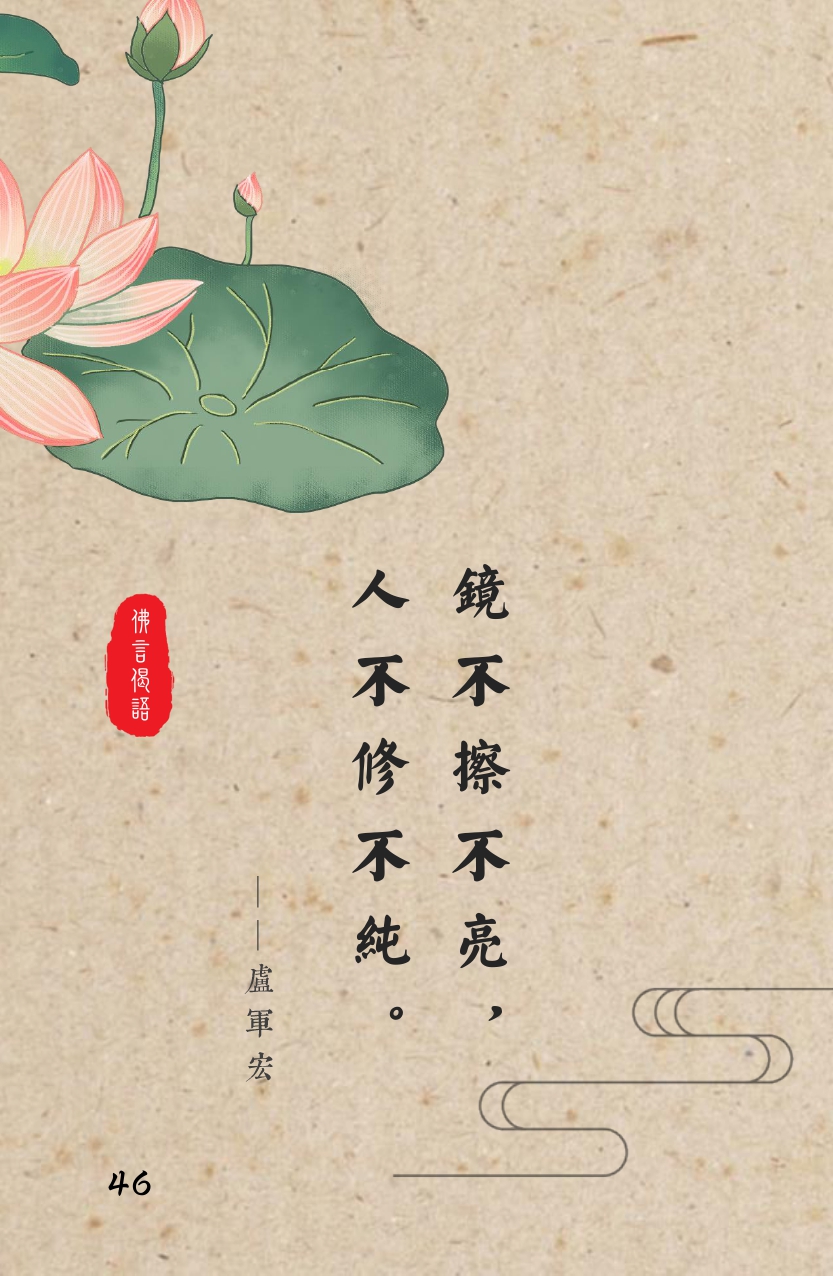 鏡不擦不亮，
人不修不純。
——盧軍宏
佛言偈語
46